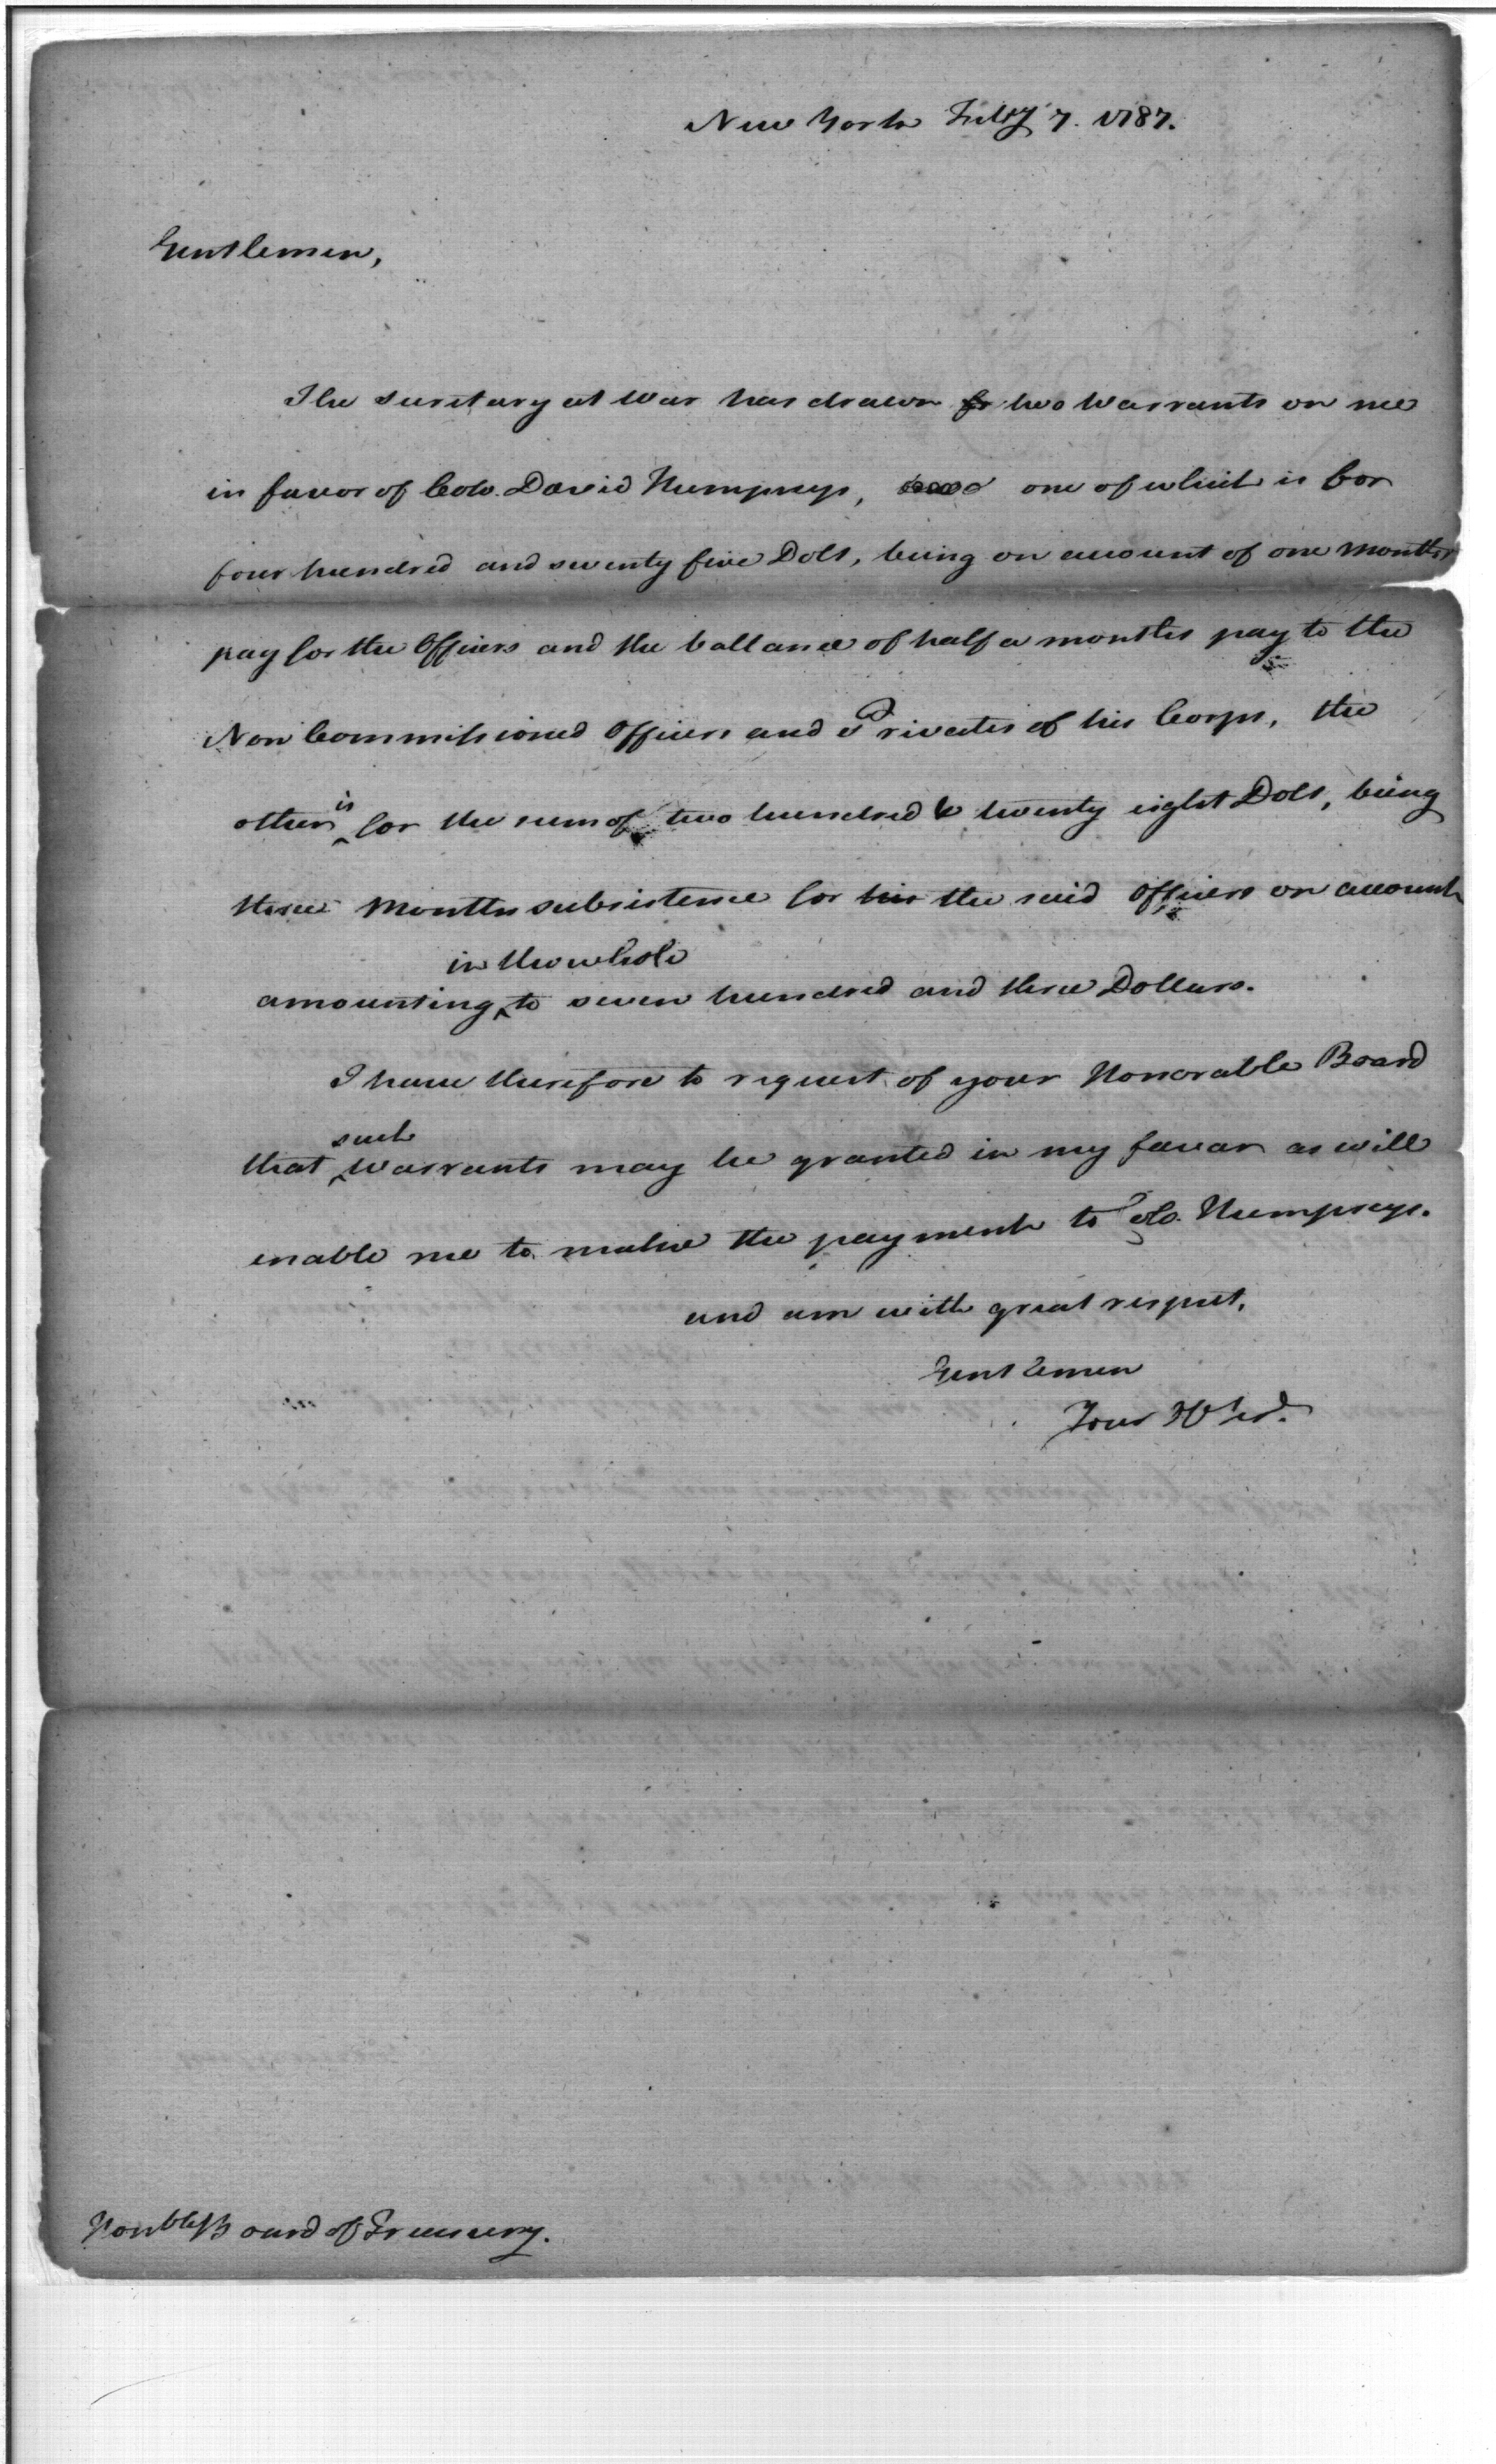 New York Feby 7. 1787.
Gentlemen,
The Secretary at War has drawn for two Warrants on me
in favor of Colo. David Humpreys, one of which is for
four hundred and seventy five Dols, being on account of one Months
pay for the Officers and the ballance of half a months pay to the
Non Commissioned Officers and Privates of his Corps, the
other is for the sum of two hundred & twenty eight Dols, being
three Months subsistence for his the said Officers on account
in the whole
amounting to seven hundred and three Dollars.
I have therefore to request of your Honorable Board
that such Warrants may be granted in my favor as will
enable me to make the payment to Colo. Humpreys.
and am with great respect,
Gentlemen
Your
Honble Board of Treasury.